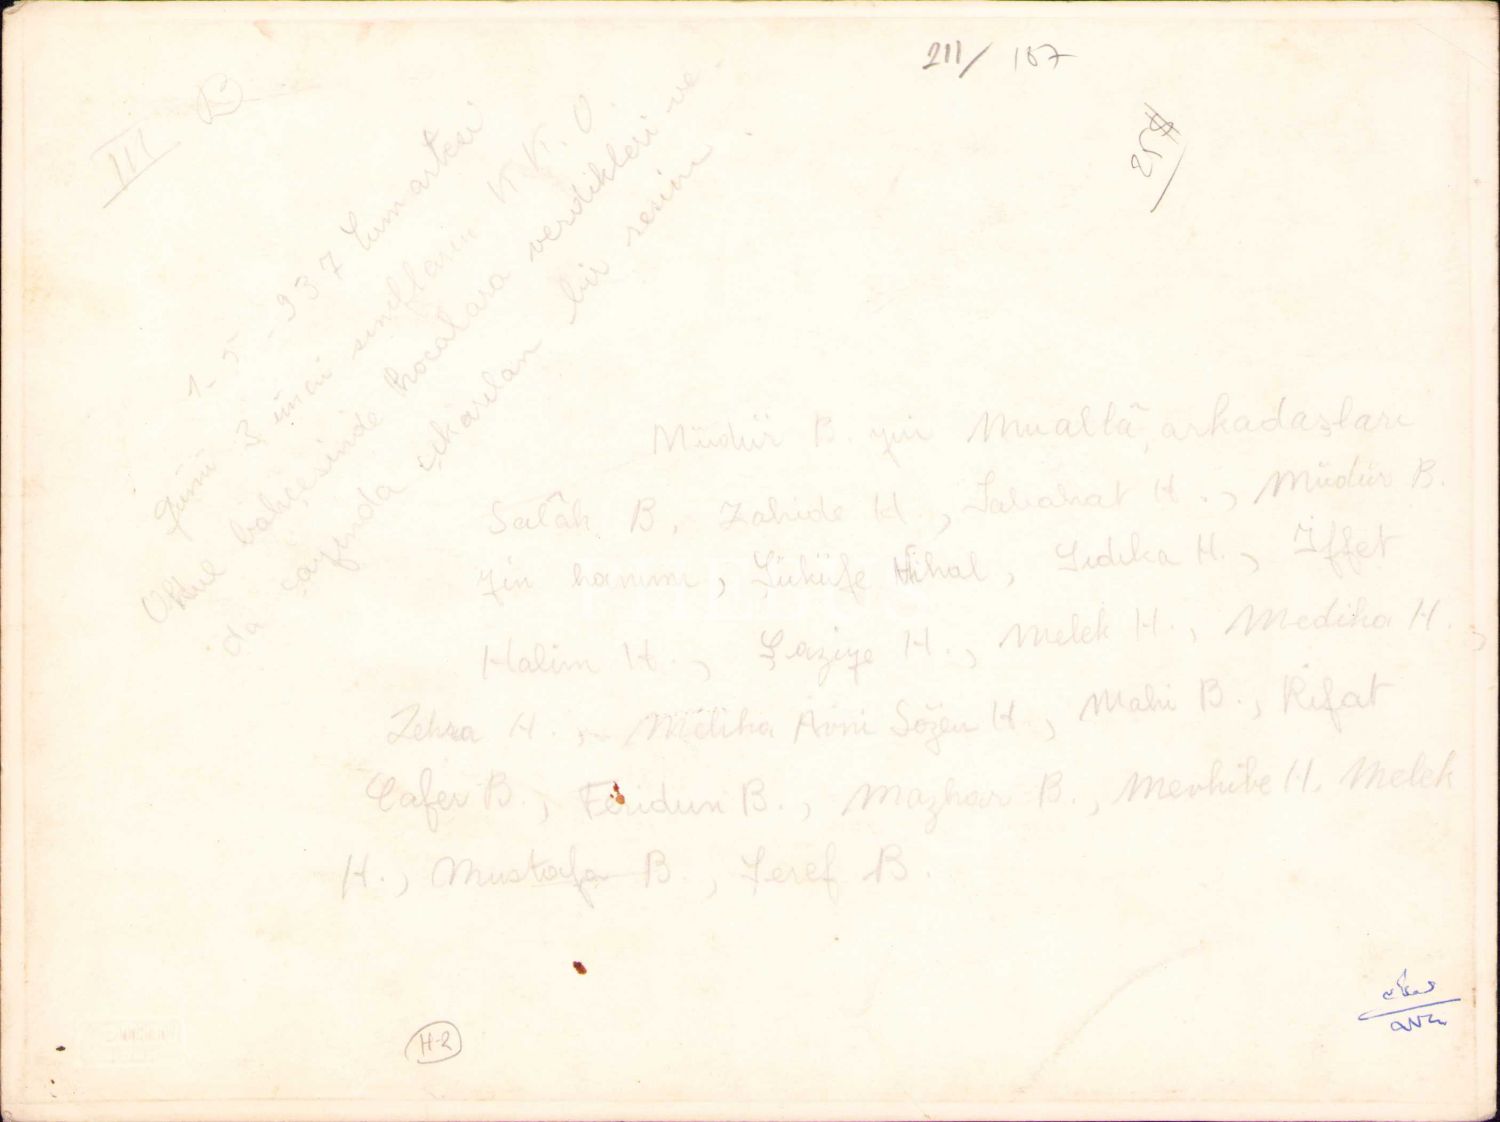 211/ 107
III B
1-5-937 Cumartesi
günü 3 üncü sınıfların K.K.O
Okul bahçesinde hocalara verdikleri ve
da çayında çıkarılan bir resim.
Müdür B. yin Muallâ, arkadaşları
Salâh B, Zahide H., Sabahat H., Müdür B.
yin hanımı, Şüküfe Nihal, Sıdıka H., İffet
Halim H., Şaziye H., Melek H., Mediha H.,
Zehra H., Meliha Avni Sözen H., Mahi B., Rifat
Cafer B., Feridun B., Mazhar B., Mevhibe H. Melek
H., Mustafa B., Şeref B.
H-2
PHEBUS